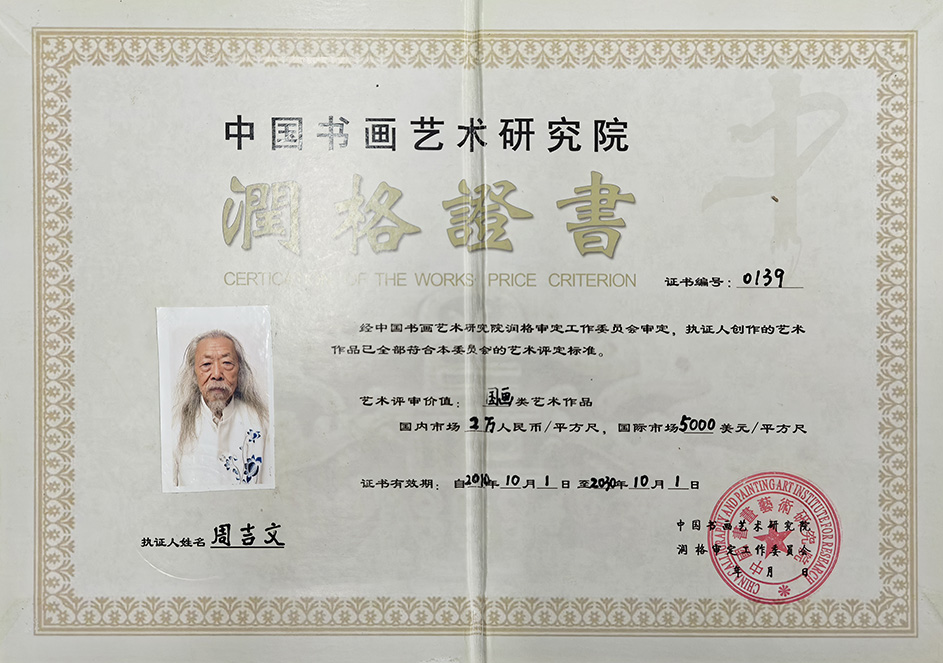 中国书画艺术研究院
潤格證書
OF THE WORKS PRICE CRITERION
证书编号：0139
经中国书画艺术研究院润格审定工作委员会审定，执证人创作的艺术
作品已全部符合本委员会的艺术评定标准。
艺术评审价值：国画类艺术作品
国内市场2万人民币/平方尺，国际市场5000美元/平方尺
证书有效期：自2010年10月1日至2030年10月1日
执证人姓名 周吉文
中国书画艺术研究院
润格审定工作委员会
年 月 日
CHINA CALLIGRAPHY AND PAINTING ART INSTITUTE FOR RESEARCH
中國書畫藝術研究院